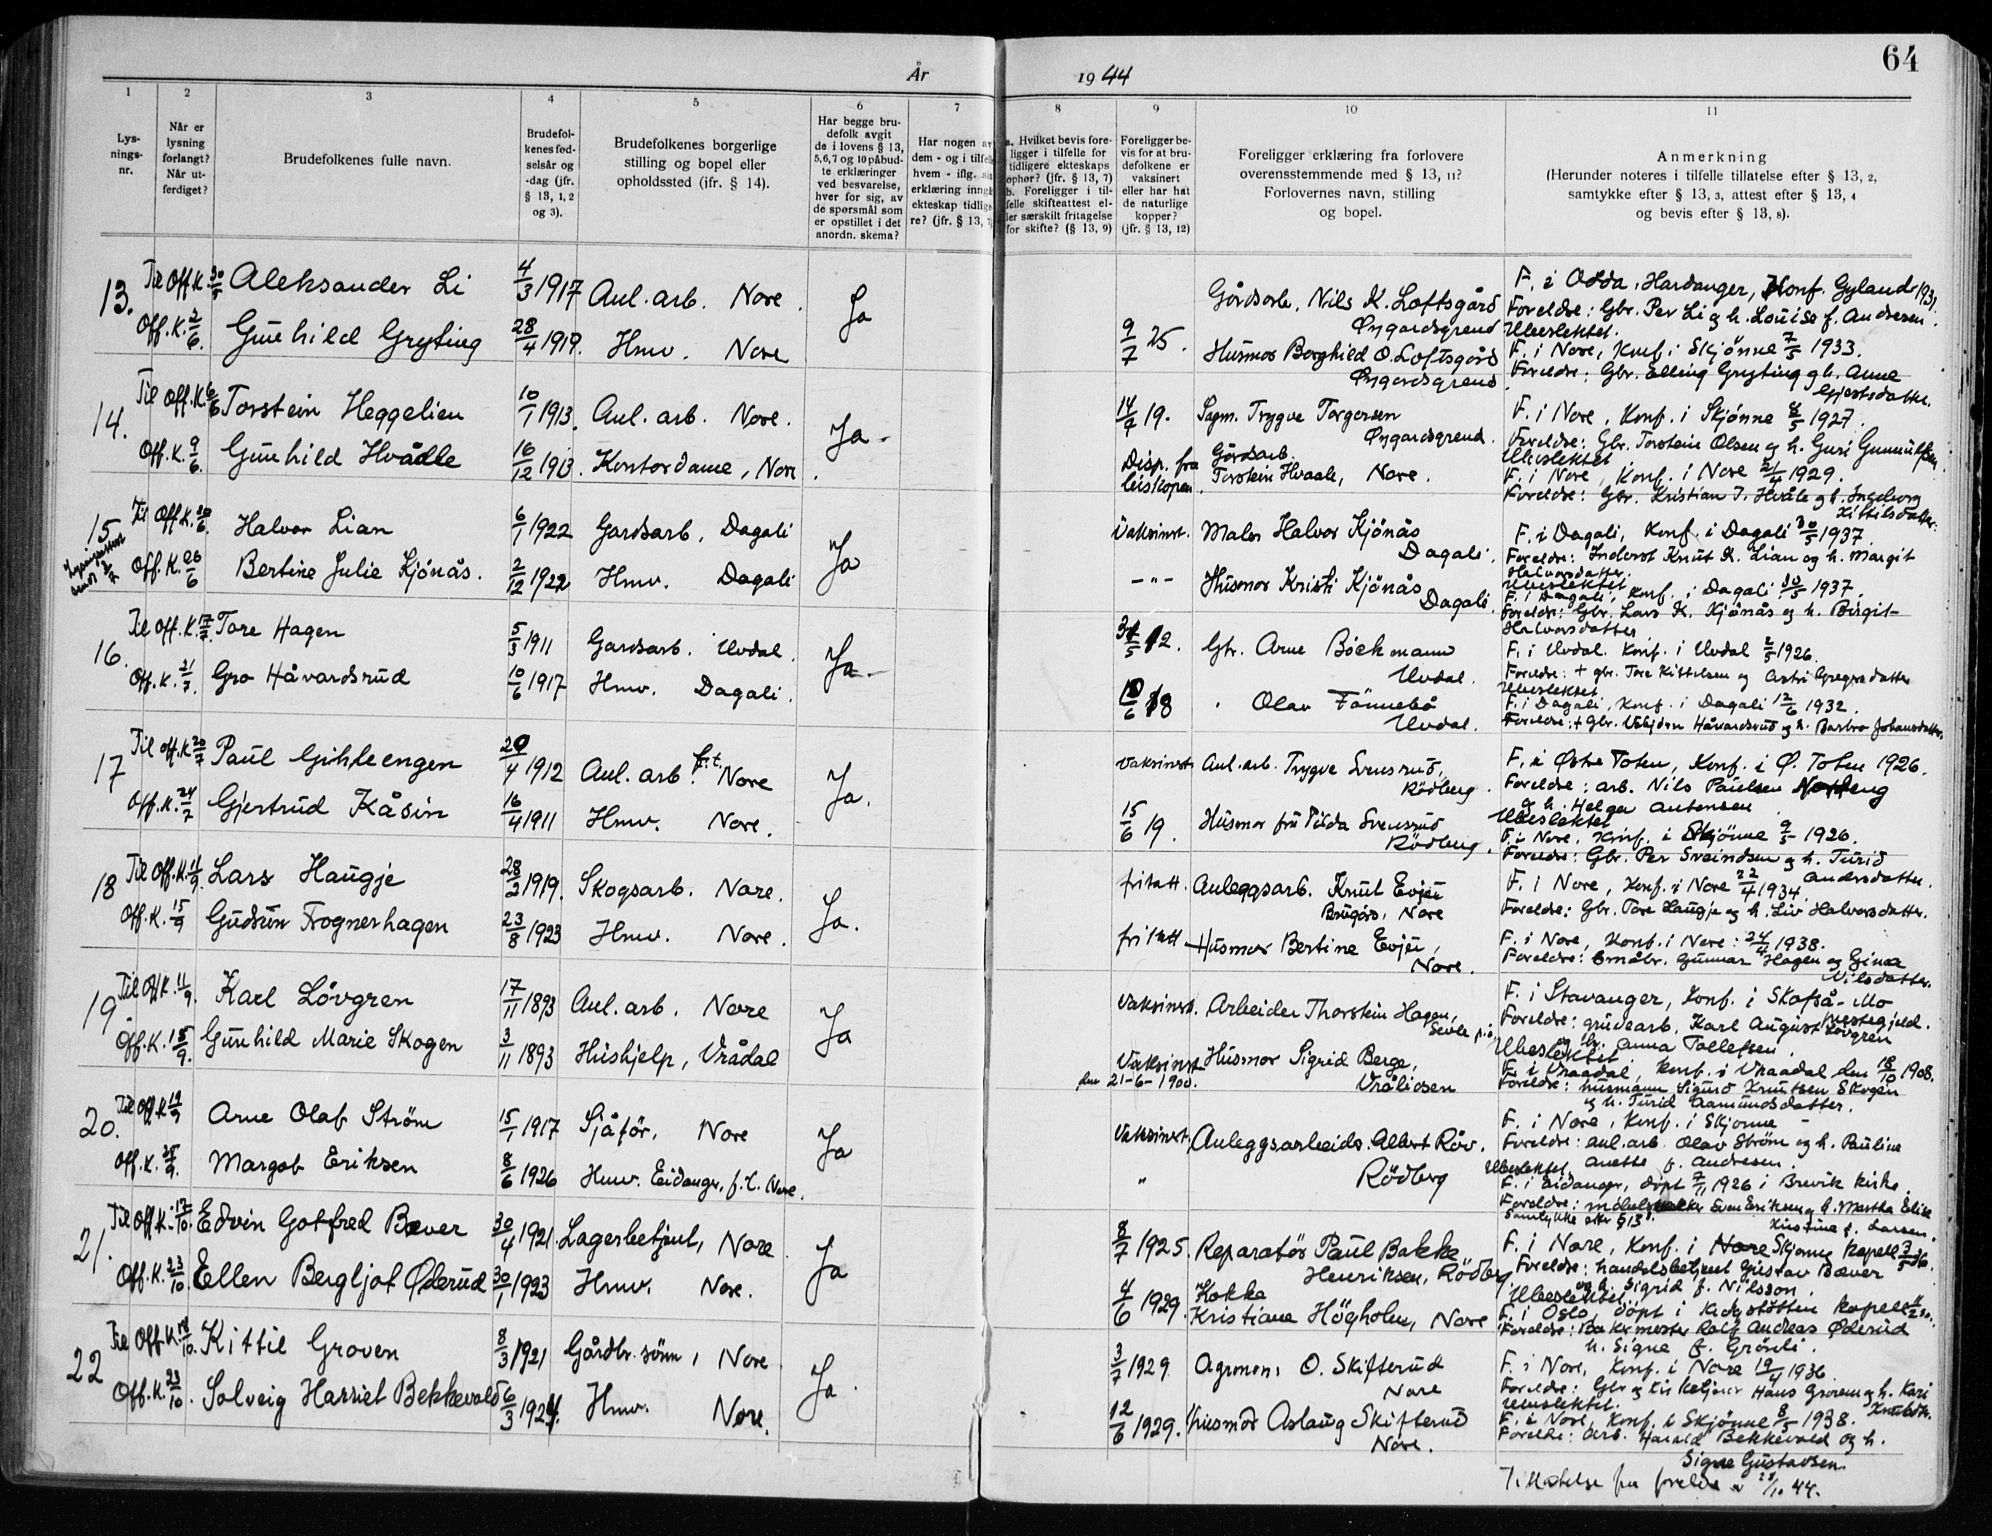 64
År 1944
1 2 3 4 5 6 7 8 9 10 11
Lysnings-nr.
Når er lysning forlangt? Når utferdiget?
Brudefolkenes fulle navn.
Brudefolkenes fødselsår og -dag (jfr. § 13, 1, 2 og 3).
Brudefolkenes borgerlige stilling og bopel eller opholdssted (ifr. § 14).
Har begge brudefolk avgit de i lovens § 13, 5,6,7 og 10 påbudte erklæringer ved besvarelse, hver for sig, av de spørsmål som er opstillet i det anordn. skema?
Har nogen av dem - og i tilfelle hvem - iflg. sin erklæring inngått ekteskap tidligere? (jfr. § 13, 7)
a. Hvilket bevis foreligger i tilfelle for tidligere ekteskaps ophør? (jfr. § 13, 7) b. Foreligger i tilfelle skifteattest eller særskilt fritagelse for skifte? (§ 13, 9)
Foreligger bevis for at brudefolkene er vaksinert eller har hatt de naturlige kopper? (jfr. § 13, 12)
Foreligger erklæring fra forlovere overensstemmende med § 13, 11? Forlovernes navn, stilling og bopel.
Anmerkning (Herunder noteres i tilfelle tillatelse efter § 13, 2, samtykke efter § 13, 3, attest efter § 13, 4 og bevis efter § 13, 8).
13. Til Off. K. 30/5 Aleksander Li 4/3 1917 Anl. arb. Nore. Ja
Off. K. 2/6. Gunhild Gryting 28/4 1919. Hmv. Nore
14. Til Off. K. 6/6 Torstein Heggelien 10/1 1913. Anl. arb. Nore. Ja.
Off. K. 9/6. Gunhild Hvåále 16/12 1913. Kontordame, Nore.
15 Til Off. K. 19/6. Halvor Lian 6/1 1922 Gardsarb. Dagali Ja
Off. K. 26/6 Bertine Julie Kjönås. 2/12 1922 Hmv. Dagali
16. Til Off. K. 17/7. Tore Hagen 5/3 1911 Gardsarb. Uvdal. Ja.
Off. K. 21/7. Gro Håvardsrud 10/6 1917 Hmv. Dagali.
17 Til Off. K. 20/7 Paul Gihleengen 20/4 1912 Anl. arb. f.t. Nore Ja.
Off. K. 24/7 Gjertrud Kåsin 16/4 1911 Hmv. Nore.
18 Til Off. K. 11/9. Lars Haugje 28/2 1919. Skogsarb. Nore. Ja.
Off. K. 15/9 Gudrun Frognerhagen 23/8 1923 Hmv. Nore.
19. Til Off. K. 11/9. Karl Lövgren 17/11 1893 Anl. arb. Nore Ja
Off. K. 15/9. Gunhild Marie Skogen 3/11 1893 Hushjelp, Vrådal
20. Til Off. K. 19/9 Arne Olaf Ström 15/1 1917 Sjåför. Nore Ja
Off. K. 25/9. Margot Eriksen 8/6 1926 Hmv. Eidanger, f.t. Nore.
21. Til Off. K. 17/10. Edvin Gotfred Bæver 30/4 1921. Lagerbetjent, Nore. Ja
Off. K. 23/10. Ellen Bergljot Øderud 30/1 1923 Hmv. Nore.
22 Til Off. K. 18/10. Kittil Groven 8/3 1921 Gårdbr. sönn, Nore. Ja.
Off. K. 23/10. Solveig Harriet Bekkevold 6/3 1924. Hmv. Nore.
Gårdsarb. Nils K. Loftsgård
Øygardsgrend
9/7 25. Husmor Borghild O. Loftsgård
Øygardsgrend
F. i Odda, Hardanger, Konf. Gyland 1931
Foreldre: Gbr. Per Li og h. Louise f. Andresen.
Ubeslektet.
F. i Nore, Konf. i Skjönne 7/5 1933.
Foreldre: Gbr. Elling Gryting og h. Anne
Gjertsdatter.
14/9 19. Sagm. Trygve Torgersen
Øygardsgrend.
Disp. fra biskopen. Gårdsarb. Torstein Hvaale, Nore.
F. i Nore, Konf. i Skjönne 8/5 1927.
Foreldre: Gbr. Torstein Olsen og h. Guri
Ubeslektet
F. i Nore, Konf. i Nore 21/4 1929.
Foreldre: Gbr. Kristian T. Hvåle og h. Ingeborg
Kittilsdatter.
Vaksinert. Maler Halvor Kjönås
Dagali.
-"- Husmor Kristi Kjönås
Dagali.
F. i Dagali, Konf. i Dagali 30/5 1937.
Foreldre: Inderst Knut K. Lian og h. Margit
Halvorsdatter.
Ubeslektet
F. i Dagali, Konf. i Dagali 30/5 1937.
Foreldre: Gbr. Lars K. Kjönås og h. Birgit
Halvorsdatter
31/5 12. Gbr. Arne Böckmann
Uvdal.
10/6 18 " Olav Tönnebö
Uvdal.
F. i Uvdal. Konf. i Uvdal 2/5 1926.
Foreldre: + gbr. Tore Kittelsen og Astri Gregersdatter
Ubeslektet
F. i Dagali, Konf. i Dagali 12/6 1932.
Foreldre: + Gbr. Vebjörn Håvardsrud og h. Barbro Johansdatter.
Vaksinert Anl. arb. Trygve Svensrud,
Rödberg.
15/6 19. Husmor fru Tilda Svensrud
Rödberg.
F. i Østre Toten, Konf. i Ø. Toten 1926.
Foreldre: arb. Nils Paulsen Nordeng
og h. Helga Antonsen
Ubeslektet
F. i Nore, Konf. i Skjönne 9/5 1926.
Foreldre: Gbr. Per Sveindsen og h. Turid
Andersdatter.
fritatt. Anleggsarb. Knut Evjen
Brugårs, Nore
fritatt Husmor Bertine Evjen,
Nore.
F. i Nore, Konf. i Nore 22/4 1934
Foreldre: Gbr. Tore Haugje og h. Liv Halvorsdatter.
F. i Nore, Konf. i Nore: 24/4 1938.
Foreldre: Småbr. Gunnar Hagen og Gina
Nilsdatter.
Vaksinert. Arbeider Thorstein Hagen,
Vaksinert den 21-6-1900. Husmor Sigrid Berge,
Vråliosen
F. i Stavanger, Konf. i Skafså-Mo
prestegjeld.
Foreldre: grubearb. Karl August Lövgren
og h. Anna Tollefsen.
Ubeslektet
F. i Vraadal, Konf. i Vraadal den 18/10 1908.
Foreldre: husmann Sigurd Knutsen Skogen
og h. Turid Aamundsdatter.
Vaksinert. Anleggsarbeider Albert Röv.
" Rödberg
F. i Nore, Konf. i Skjönne -
Foreldre: anl. arb. Olav Ström og h. Pauline
Anette f. Andresen.
Ubeslektet
F. i Eidanger, döpt 7/11 1926 i Brevik kirke.
Foreldre: möbelsnekker Even Eriksen og h. Martha Elise
Kristine f. Larsen.
Samtykke etter § 13³.
8/7 1925. Reparatör Paul Bakke
Henriksen, Rödberg.
4/6 1929. Kokke
Kristiane Högholm, Nore
F. i Nore, Konf. i Nore Skjönne kapell 3/5 36.
Foreldre: handelsbetjent Gustav Bæver
og h. Sigrid f. Nilsson.
Ubeslektet
F. i Oslo, döpt i
Foreldre: Bakermester Rolf Andreas Øderud
h. Signe f. Grönli.
3/7 1929 Agronom O. Skifterud
Nore
12/6 1929. Husmor Aslaug Skifterud
Nore.
F. i Nore, Konf. i Nore 19/4 1936
Foreldre: Gbr og kirketjener Hans Groven og h. Kari
Knutsdtr.
Ubeslektet.
F. i Nore, Konf. i Skjönne 8/5 1938.
Foreldre: Arb. Harald Bekkevold og h.
Signe Gustavsen.
Tillatelse fra foreldre 28/10 44.